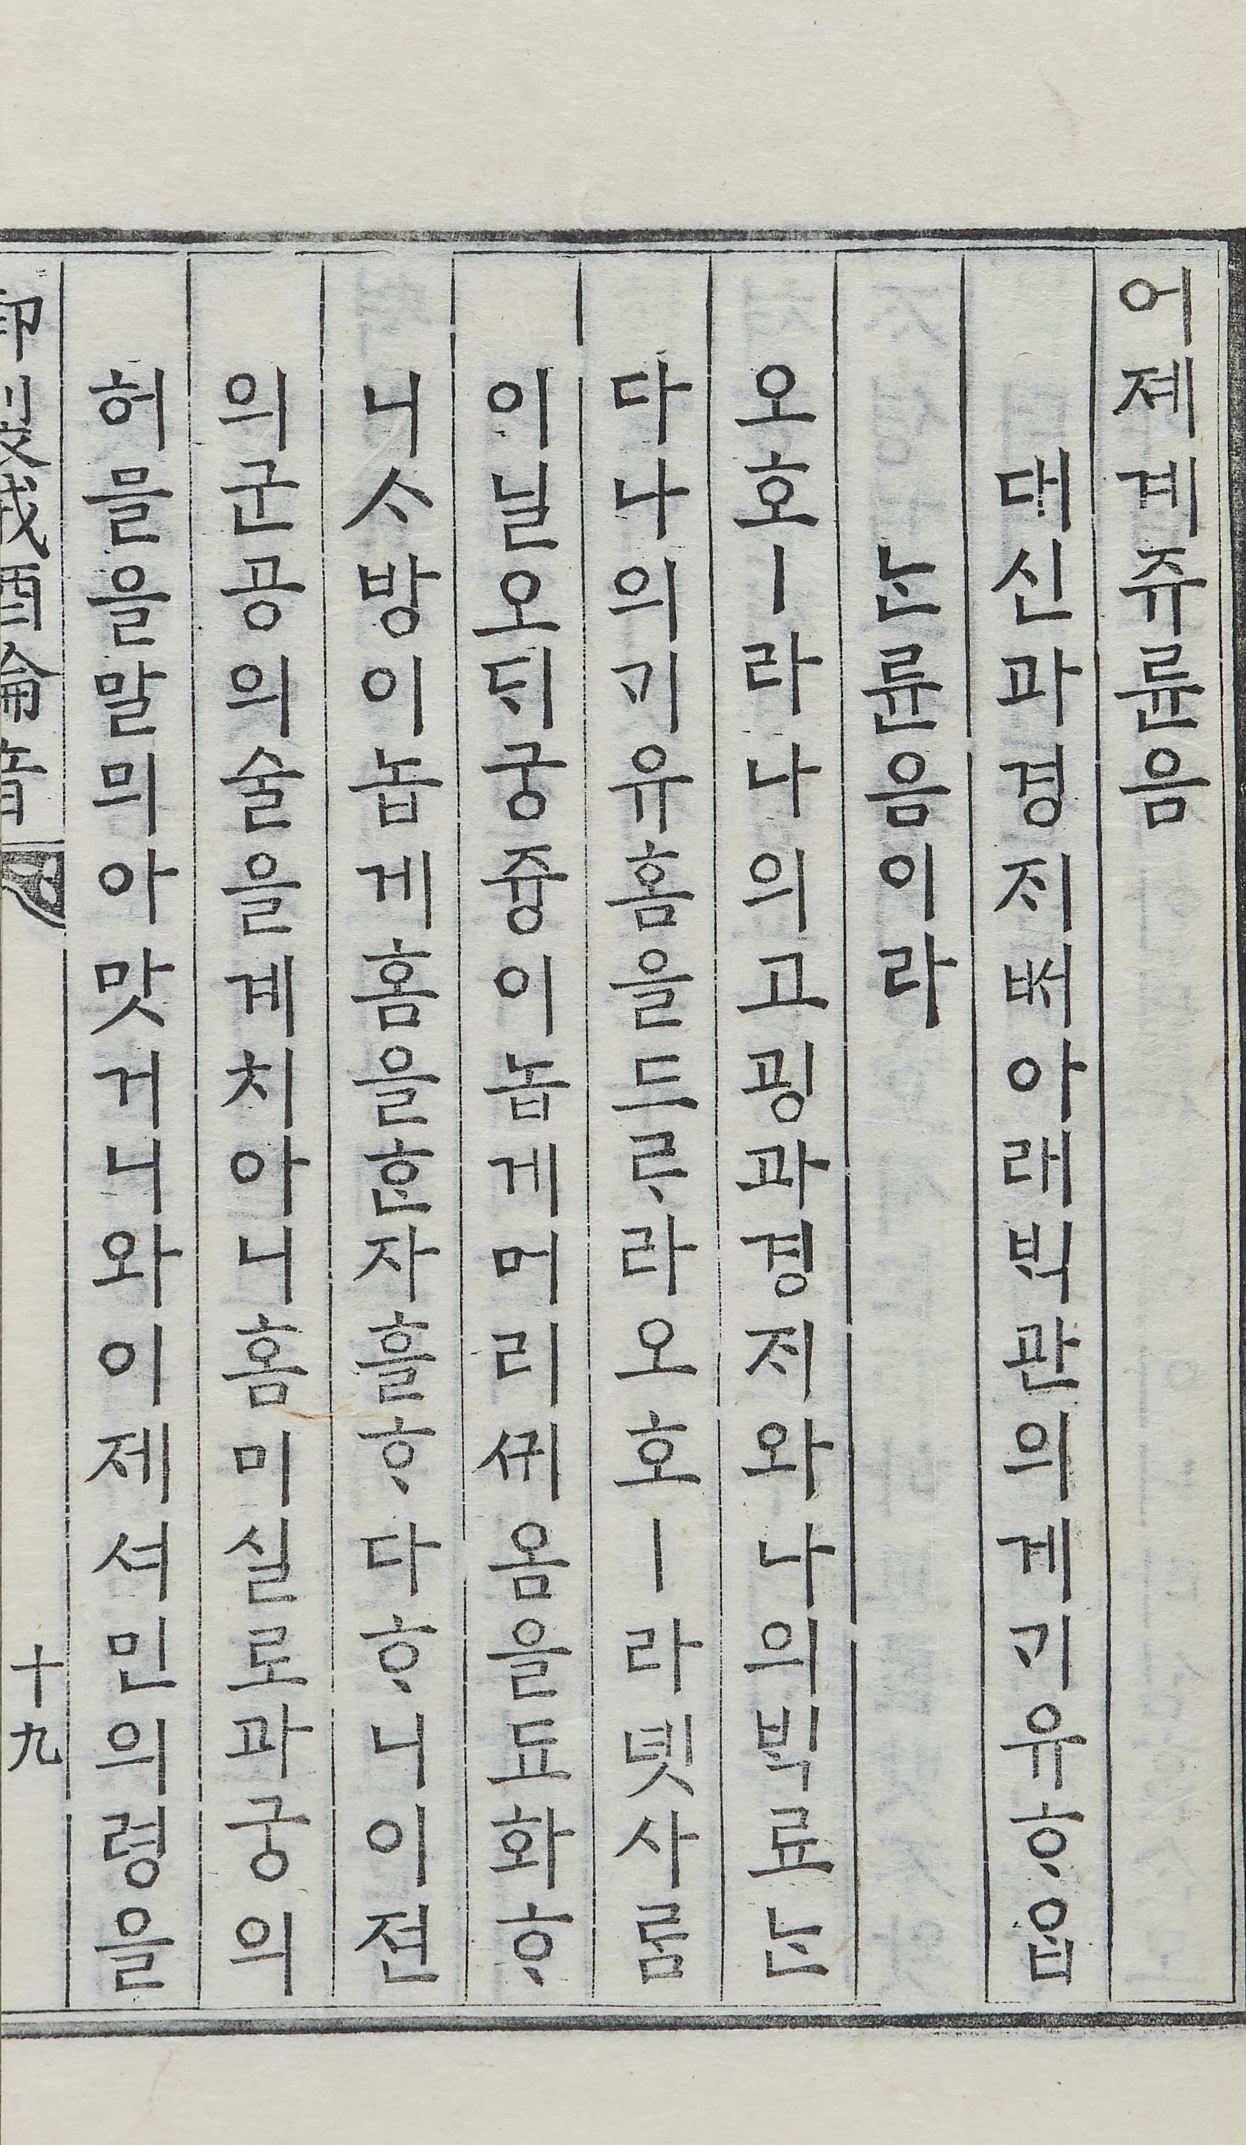 어졔계쥬륜음
대신과경ᄌᆡᄡᅥ아래ᄇᆡᆨ관의계ᄀᆡ유ᄒᆞᄋᆞᆸ
ᄂᆞᆫ륜음이라
오호ㅣ라나의고굉과경ᄌᆡ와나의ᄇᆡᆨ료ᄂᆞᆫ
다나의ᄀᆡ유홈을드ᄅᆞ라오호ㅣ라녯사ᄅᆞᆷ
이닐오ᄃᆡ궁즁이놉게머리ᄭᅱ옴을됴화ᄒᆞ
니ᄉᆞ방이놉게홈을ᄒᆞᆫ자흘ᄒᆞ다ᄒᆞ니이젼
의군공의술을계치아니홈미실로과궁의
허믈을말ᄆᆡ아맛거니와이제셔민의령을
御製戒酒綸音
十九